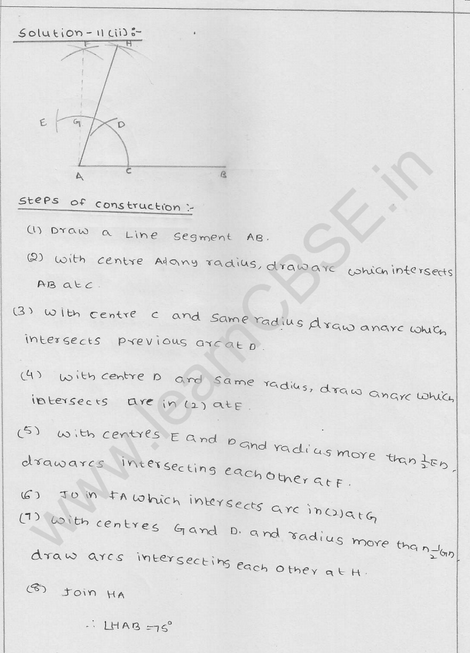 Solution-11(ii):-
F H
E G D
A C B
Steps of construction:-
(1) Draw a Line segment AB.
(2) with centre A & any radius, draw arc which intersects
AB at C.
(3) With centre C and same radius, draw an arc which
intersects previous arc at D.
(4) with centre D and same radius, draw an arc which
intersects arc in (2) at E.
(5) With centres E and D and radius more than 1/2 ED,
draw arcs intersecting each other at F.
(6) Join FA which intersects arc in (2) at G
(7) With centres G and D. and radius more than 1/2 GD,
draw arcs intersecting each other at H.
(8) Join HA
∴ ∠HAB = 75°
www.learnCBSE.in